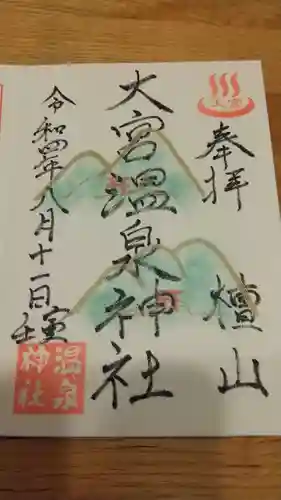 奉拝
檀山
大宮温泉神社
令和四年八月十一日
壬寅
温泉神社